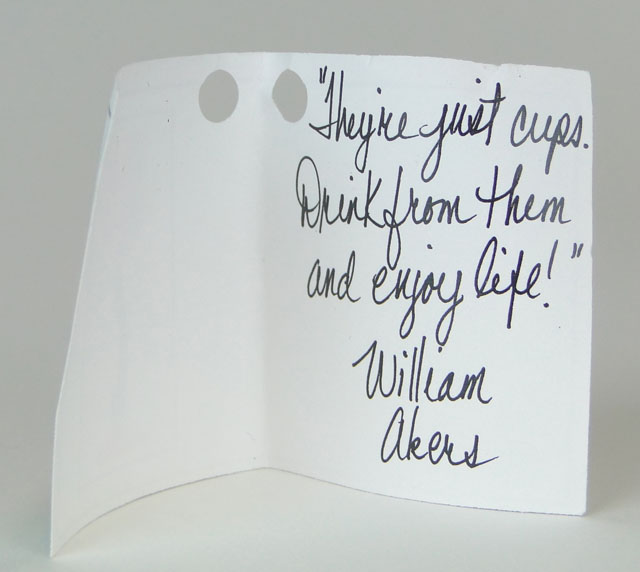 "They're just cups.
Drink from them
and enjoy life!"
William
Akers